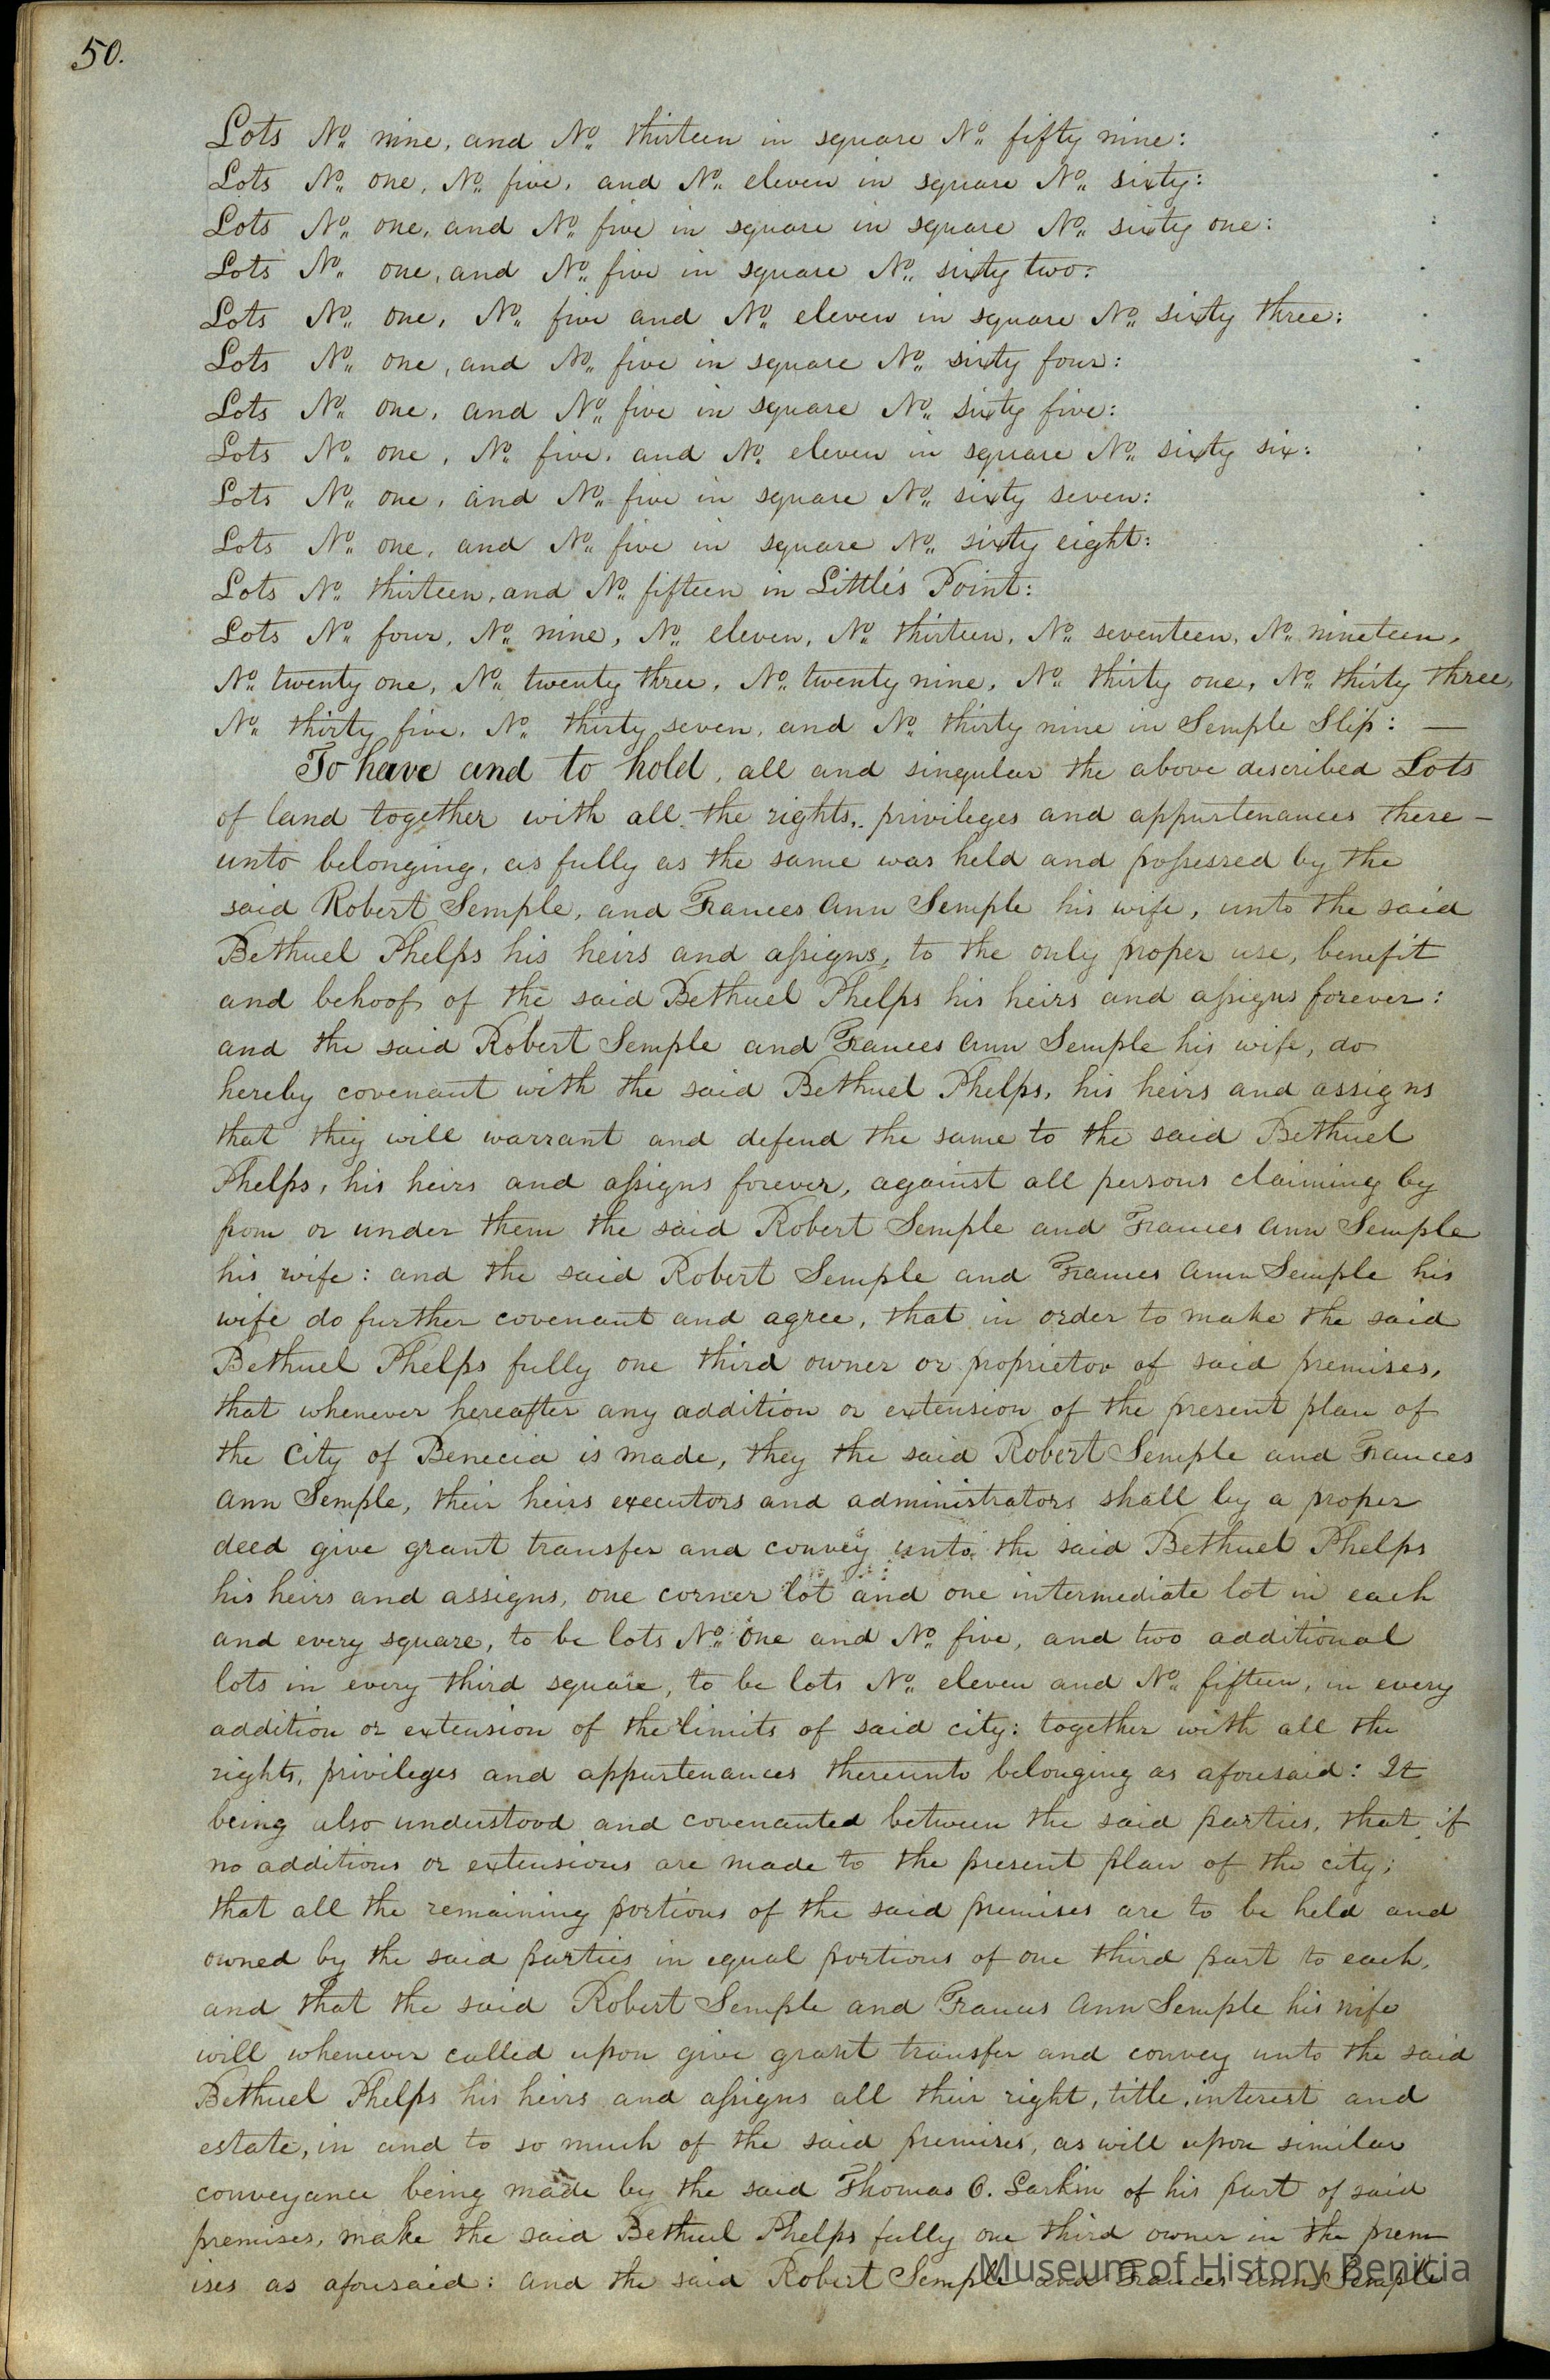 50.
Lots No. nine, and No. thirteen in square No. fifty nine:
Lots No. one, No. five, and No. eleven in square No. sixty:
Lots No. one, and No. five in square in square No. sixty one:
Lots No. one, and No. five in square No. sixty two:
Lots No. one, No. five and No. eleven in square No. sixty three:
Lots No. one, and No. five in square No. sixty four:
Lots No. one, and No. five in square No. sixty five:
Lots No. one, No. five, and No. eleven in square No. sixty six:
Lots No. one, and No. five in square No. sixty seven:
Lots No. one, and No. five in square No. sixty eight:
Lots No. thirteen, and No. fifteen in Little's Point:
Lots No. four, No. nine, No. eleven, No. thirteen, No. seventeen, No. nineteen,
No. twenty one, No. twenty three, No. twenty nine, No. thirty one, No. thirty three,
No. thirty five, No. thirty seven, and No. thirty nine in Semple Slip: —
To have and to hold, all and singular the above described Lots
of land together with all the rights, privileges and appurtenances there-
unto belonging, as fully as the same was held and possessed by the
said Robert Semple, and Frances Ann Semple his wife, unto the said
Bethuel Phelps his heirs and assigns, to the only proper use, benefit
and behoof of the said Bethuel Phelps his heirs and assigns forever:
and the said Robert Semple and Frances Ann Semple his wife, do
hereby covenant with the said Bethuel Phelps, his heirs and assigns
that they will warrant and defend the same to the said Bethuel
Phelps, his heirs and assigns forever, against all persons claiming by
from or under them the said Robert Semple and Frances Ann Semple
his wife: and the said Robert Semple and Frances Ann Semple his
wife do further covenant and agree, that in order to make the said
Bethuel Phelps fully one third owner or proprietor of said premises,
that whenever hereafter any addition or extension of the present plan of
the City of Benecia is made, they the said Robert Semple and Frances
Ann Semple, their heirs executors and administrators shall by a proper
deed give grant transfer and convey unto the said Bethuel Phelps
his heirs and assigns, one corner lot and one intermediate lot in each
and every square, to be lots No. one and No. five, and two additional
lots in every third square, to be lots No. eleven and No. fifteen, in every
addition or extension of the limits of said city: together with all the
rights, privileges and appurtenances thereunto belonging as aforesaid: It
being also understood and covenanted between the said parties, that if
no additions or extensions are made to the present plan of the city;
that all the remaining portions of the said premises are to be held and
owned by the said parties in equal portions of one third part to each,
and that the said Robert Semple and Frances Ann Semple his wife
will whenever called upon give grant transfer and convey unto the said
Bethuel Phelps his heirs and assigns all their right, title, interest and
estate, in and to so much of the said premises, as will upon similar
conveyance being made by the said Thomas O. Larkin of his part of said
premises, make the said Bethuel Phelps fully one third owner in the prem
ises as aforesaid: and the said Robert Semple and Frances Ann Semple
Museum of History Benicia